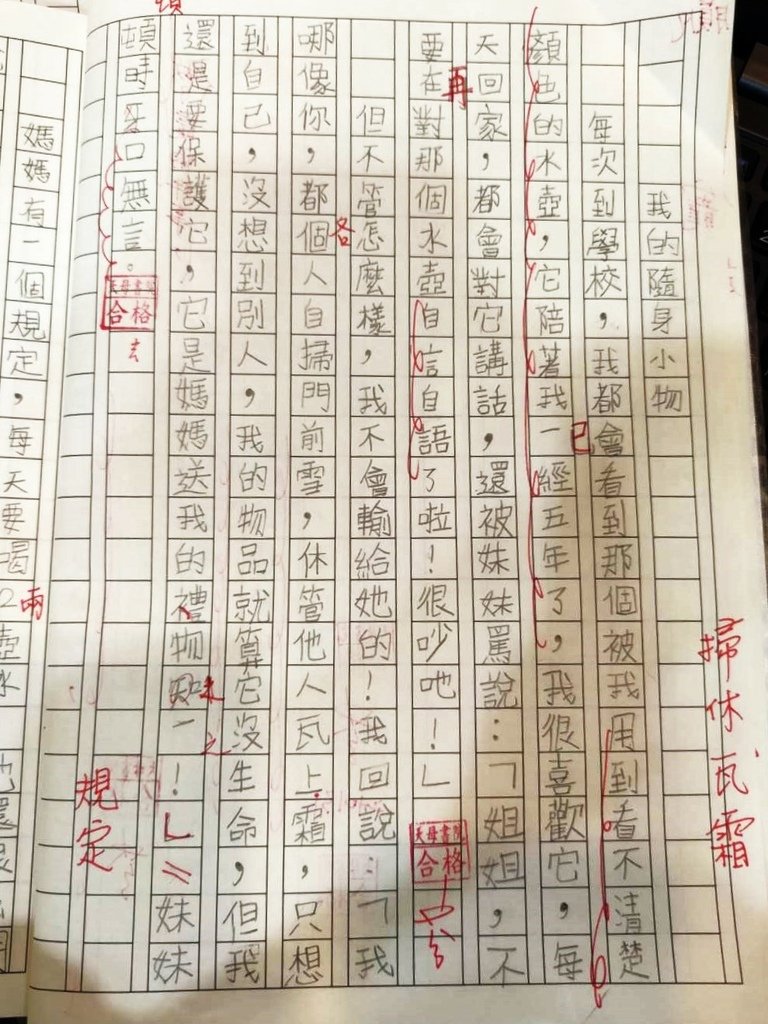 掃休瓦霜
我的隨身小物
每次到學校，我都會看到那個被我用到看不清楚
顏色的水壺，它陪著我一經五年了，我很喜歡它，每
已
天回家，都會對它講話，還被妹妹罵說：「姐姐，不
再
要在對那個水壺自信自語了啦！很吵吔！」
天母書院
合格
但不管怎麼樣，我不會輸給她的！我回說：「我
各
哪像你，都個人自掃門前雪，休管他人瓦上霜，只想
到自己，沒想到別人，我的物品就算它沒生命，但我
還是要保護它，它是媽媽送我的禮物 一！」妹妹
之
頓
頓時 口無言。
天母書院
合格
規定
媽媽有一個規定，每天要喝2壺水
兩